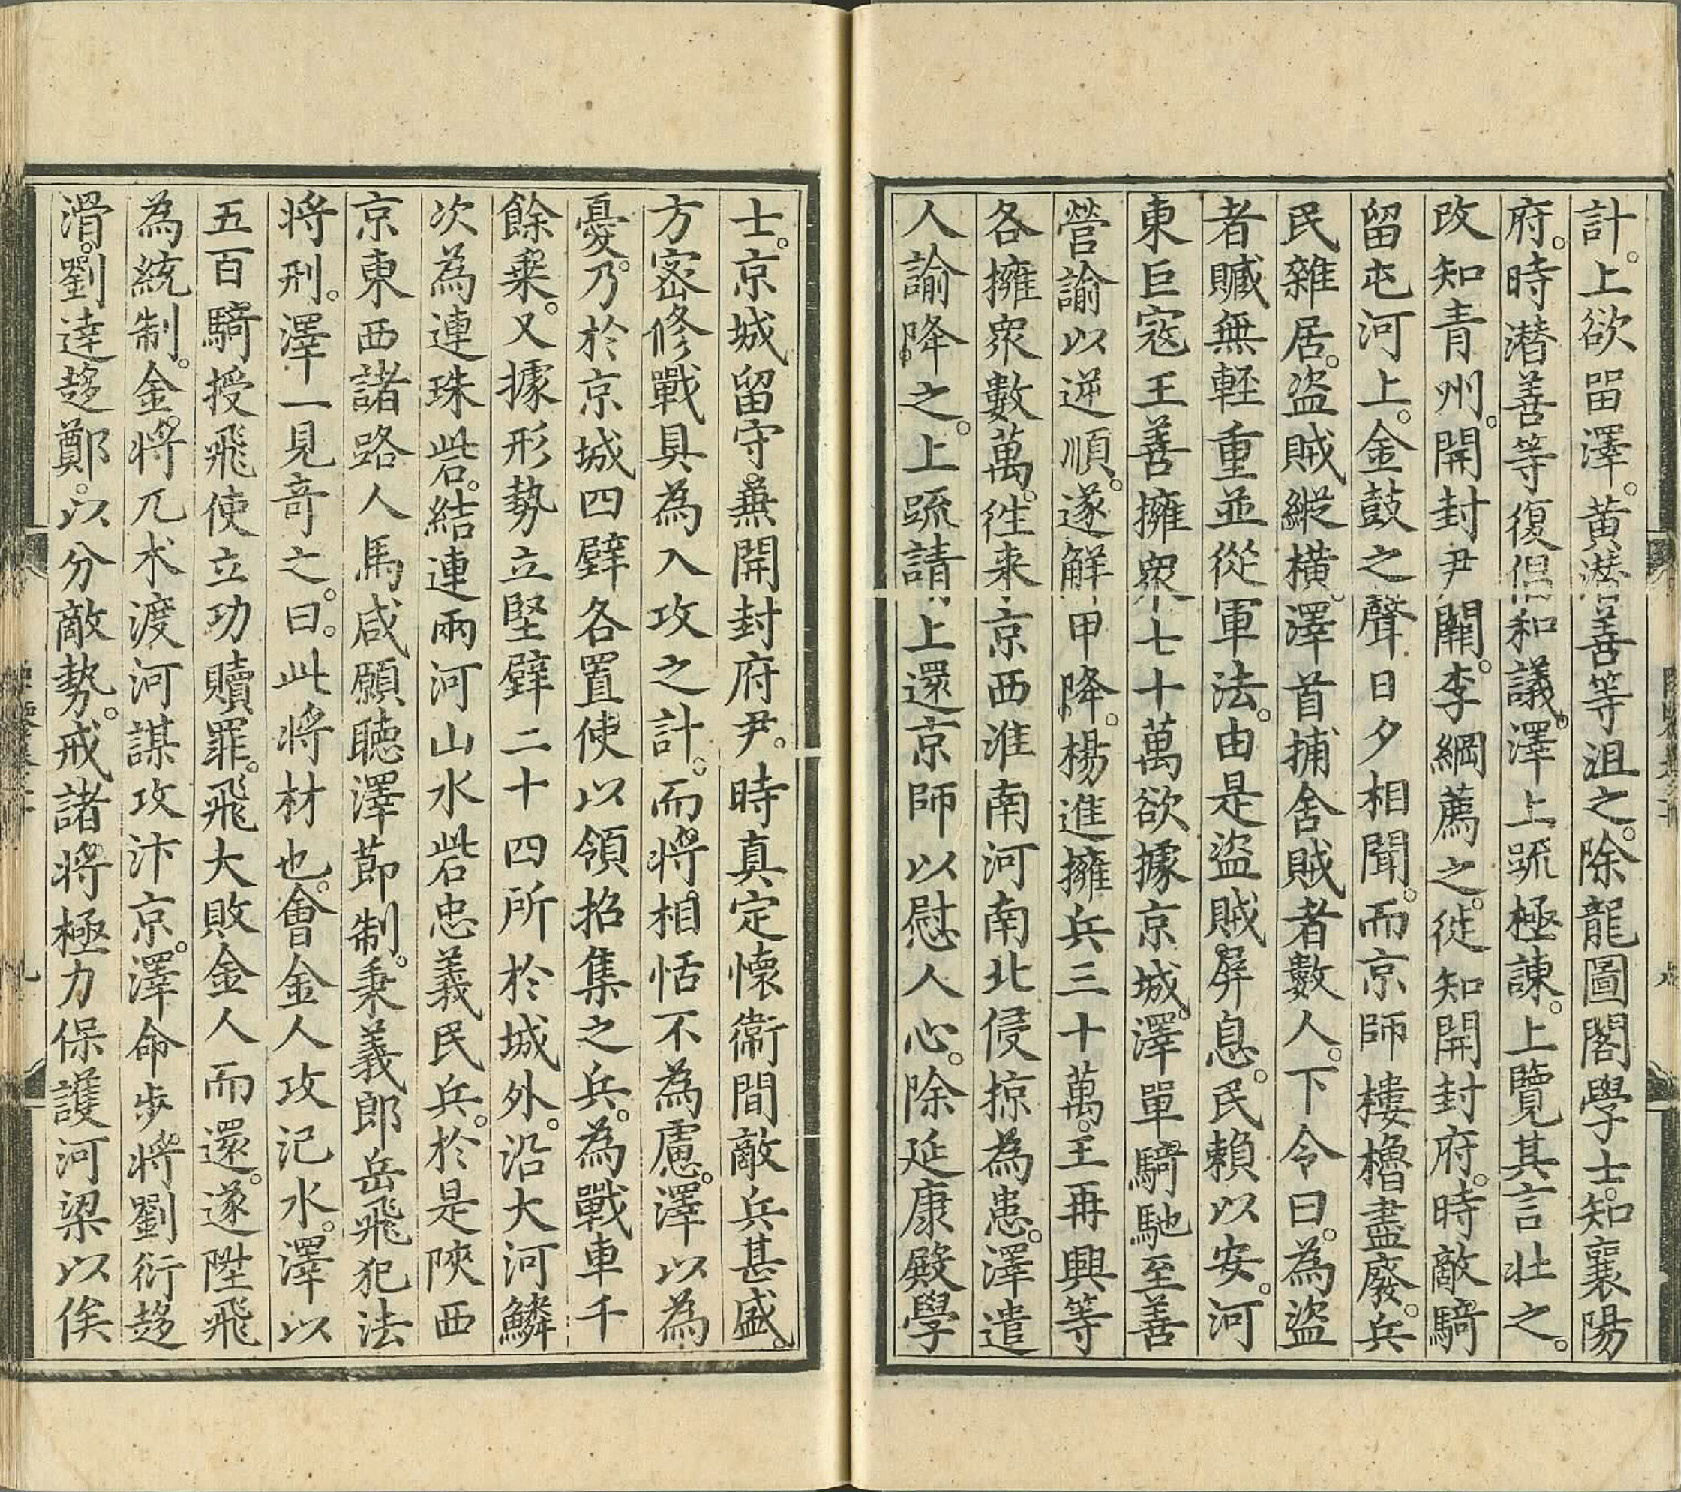 計。上欲畱澤。黄潛善等沮之。除龍圖閣學士。知襄陽
府。時潜善等復倡和議。澤上䟽極諫。上覽其言壯之。
改知青州。開封尹闕。李綱薦之。徙知開封府。時敵騎
留屯河上。金鼓之聲日夕相聞。而京師樓櫓盡廢。兵
民雜居。盗賊縱横。澤首捕舍賊者數人。下令曰。為盗
者贓無輕重並從軍法。由是盗賊屏息。民賴以安。河
東巨寇王善擁衆七十萬欲據京城。澤單騎馳至善
營諭以逆順。遂解甲降。楊進擁兵三十萬。王再興等
各擁衆數萬。徃来京西淮南河南北侵掠為患。澤遣
人諭降之。上䟽請上還京師以慰人心。除延康殿學
士。京城留守。兼開封府尹。時真定懷衛間敵兵甚盛。
方宻修戰具為入攻之計。而將相恬不為慮。澤以為
憂。乃於京城四壁各置使以領招集之兵。為戰車千
餘乗。又據形勢立堅壁二十四所於城外。沿大河鱗
次為連珠砦。結連兩河山水砦忠義民兵。於是陜西
京東西諸路人馬咸願聽澤莭制。秉義郎岳飛犯法
将刑。澤一見竒之。曰。此将材也。會金人攻汜水。澤以
五百騎授飛使立功贖罪。飛大敗金人而還。遂陞飛
為統制。金將兀朮渡河謀攻汴京。澤命步將劉衍趍
滑。劉逹趍鄭。以分敵勢。戒諸將極力保護河梁以俟